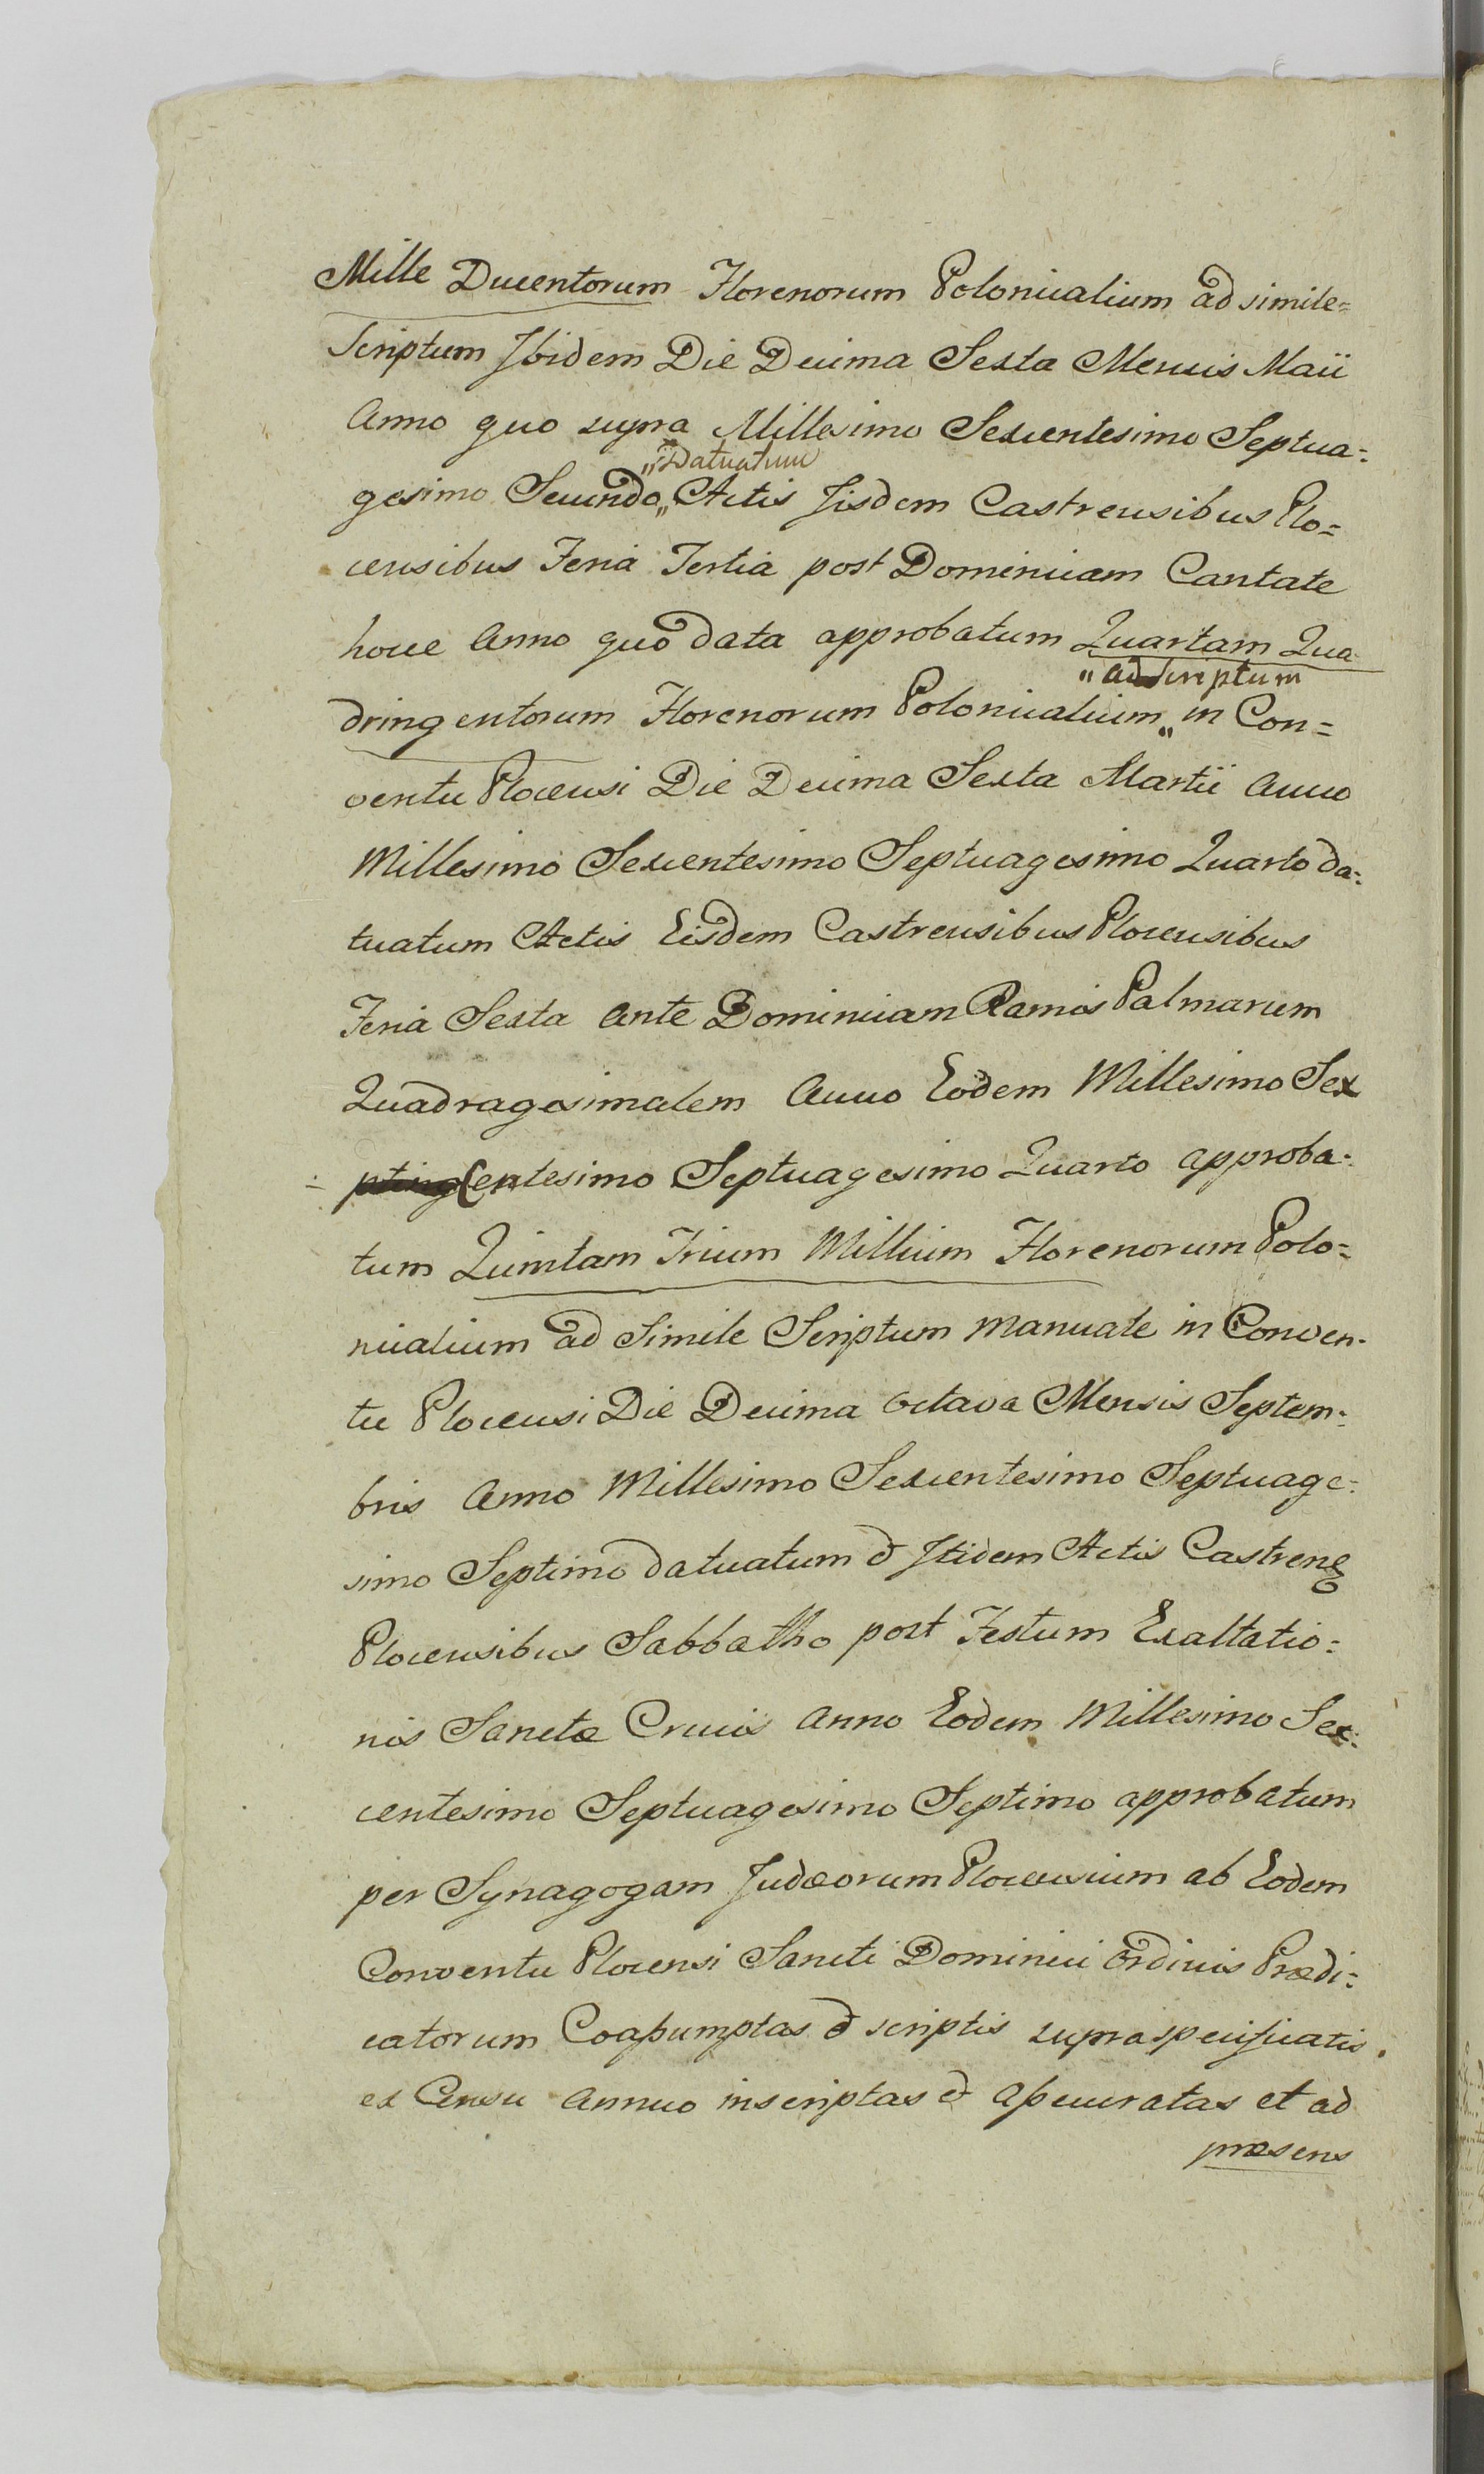 Mille Ducentorum Florenorum Polonicalium ad simile=
Scriptum Ibidem Die Decima Sexta Mensis Maii
Anno quo supra Millesimo Sexcentesimo Septua=
„Datuatum
gesimo Secundo„ Actis Iisdem Castrensibus Plo=
censibus Feria Tertia post Dominicam Cantate
hocce Anno quo data approbatum Quartam Qua
„ad Scriptum
dringentorum Florenorum Polonicalium„ in Con=
ventu Plocensi Die Decima Sexta Martii Anno
Millesimo Sexcentesimo Septuagesimo Quarto da=
tuatum Actis Eisdem Castrensibus Plocensibus
Feria Sexta Ante Dominicam Ramis Palmarum
Quadragesimalem Anno Eodem Millesimo Sex
pting Centesimo Septuagesimo Quarto approba=
tum Quintam Trium Millium Florenorum Polo=
nicalium ad Simile Scriptum Manuale in Conven=
tu Plocensi Die Decima Octava Mensis Septem=
bris Anno Millesimo Sexcentesimo Septuage=
simo Septimo datuatum & Itidem Actis Castren
Plocensibus Sabbatho post Festum Exaltatio=
nis Sanctæ Crucis Anno Eodem Millesimo Sex=
centesimo Septuagesimo Septimo approbatum
per Synagogam Judæorum Plocensium ab Eodem
Conventu Plocensi Sancti Dominici Ordinis Prædi=
catorum Coassumptas & scriptis supraspecificatis
ex Censu Annuo inscriptas & assecuratas et ad
præsens